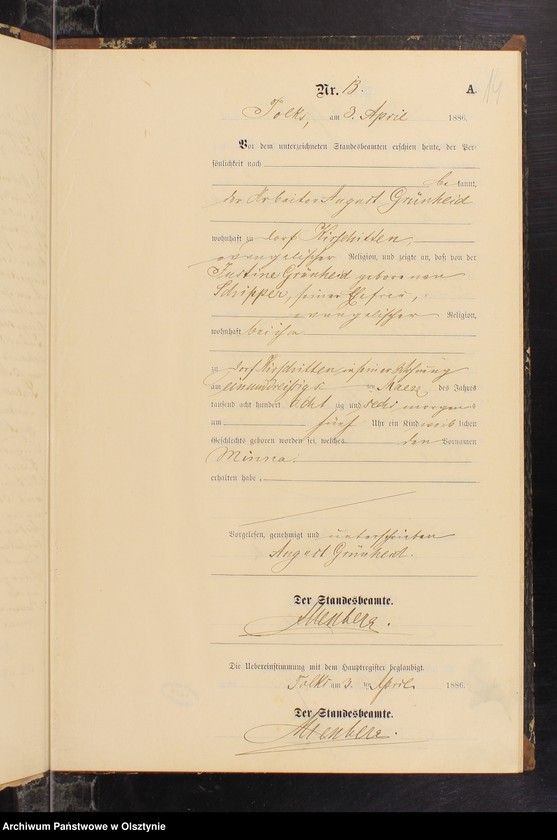 Nr. 13.
A.
14
Tolks, am 3. April 1886.
Vor dem unterzeichneten Standesbeamten erschien heute, der Per-
sönlichkeit nach
be kannt,
der Arbeiter August Grünheid
wohnhaft zu Dorf Kirschitten,
evangelischer Religion, und zeigte an, daß von der
Justine Grünheid geborenen
Schipper, seiner Ehefrau,
evangelischer Religion,
wohnhaft bei ihm
zu Dorf Kirschitten in seiner Wohnung
am einunddreißigsten März des Jahres
tausend acht hundert acht zig und sechs morgens
um fünf Uhr ein Kind weib lichen
Geschlechts geboren worden sei, welches den Vornamen
Minna
erhalten habe.
Vorgelesen, genehmigt und unterschrieben
August Grünheid.
Der Standesbeamte.
Altenberg.
Die Uebereinstimmung mit dem Hauptregister beglaubigt.
Tolks am 3. ten April 1886.
Der Standesbeamte.
Altenberg.
Archiwum Państwowe w Olsztynie